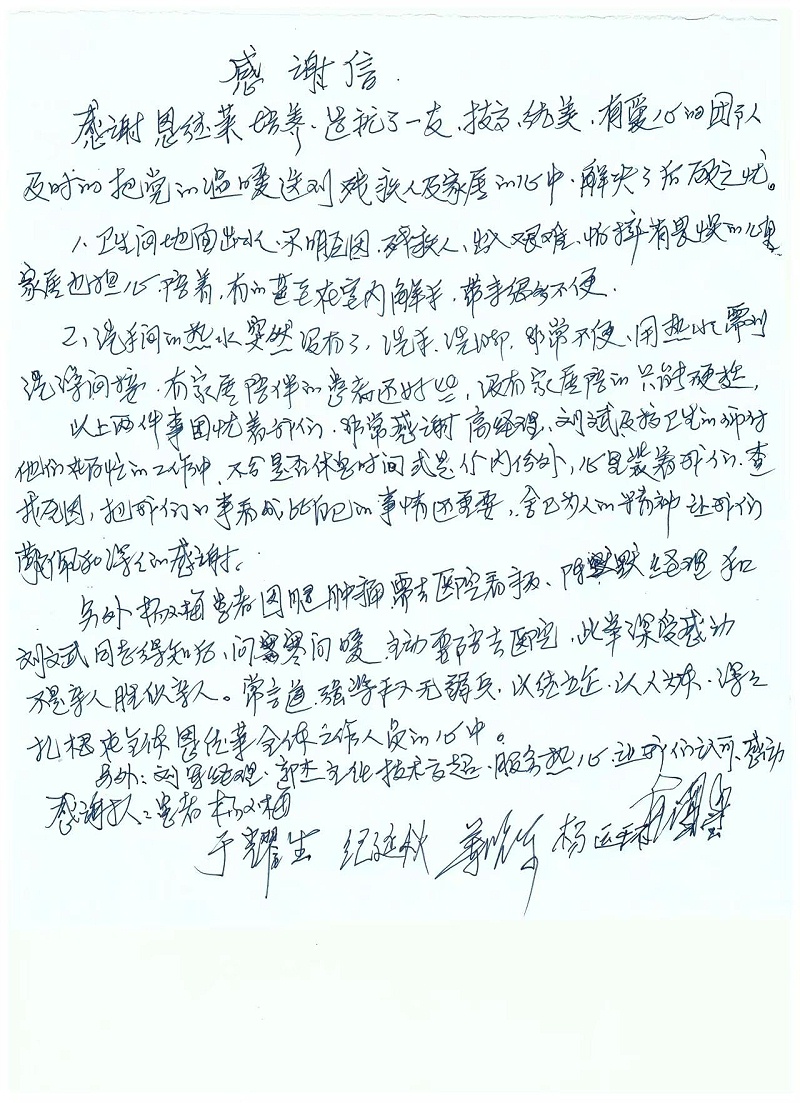 感谢信.
感谢恩德莱培养、造就了一支、技高、优美、有爱心的团队
及时的把党的温暖送到残疾人及家属的心中、解决了后顾之忧。
1、卫生间地面出水、不明原因、残疾人、出入艰难、怕摔有畏惧的心里
家属也担心陪着,有的甚至在室内解手,带来很多不便.
2、洗手间的热水突然没有了,洗手、洗脚,非常不便、用热水需到
洗澡间接、有家属陪伴的患者还好些,没有家属陪的只能硬挺,
以上两件事困忧着我们、非常感谢高经理、刘斌及搞卫生的师付
他们在百忙的工作中,不分是否休息时间或是分内份外,心里装着我们、查
找原因,把我们的事看成比自己的事情还重要,舍己为人的精神让我们
敬佩和深深的感谢.
另外杨义梅患者因腿肿痛需去医院看手、陈默默经理和
刘文武同志得知后,问寒问暖、主动要陪去医院,此举深受感动
不是亲人胜似亲人。常言道、强将手下无弱兵,以德为正、以人为本、深深
扎根在全体恩德莱全体工作人员的心中。
另外:刘军经理、郭杰主任技术高超、服务热心、让我们认可、感动
感谢人:患者杨义梅
于耀生 纪延秋 杨